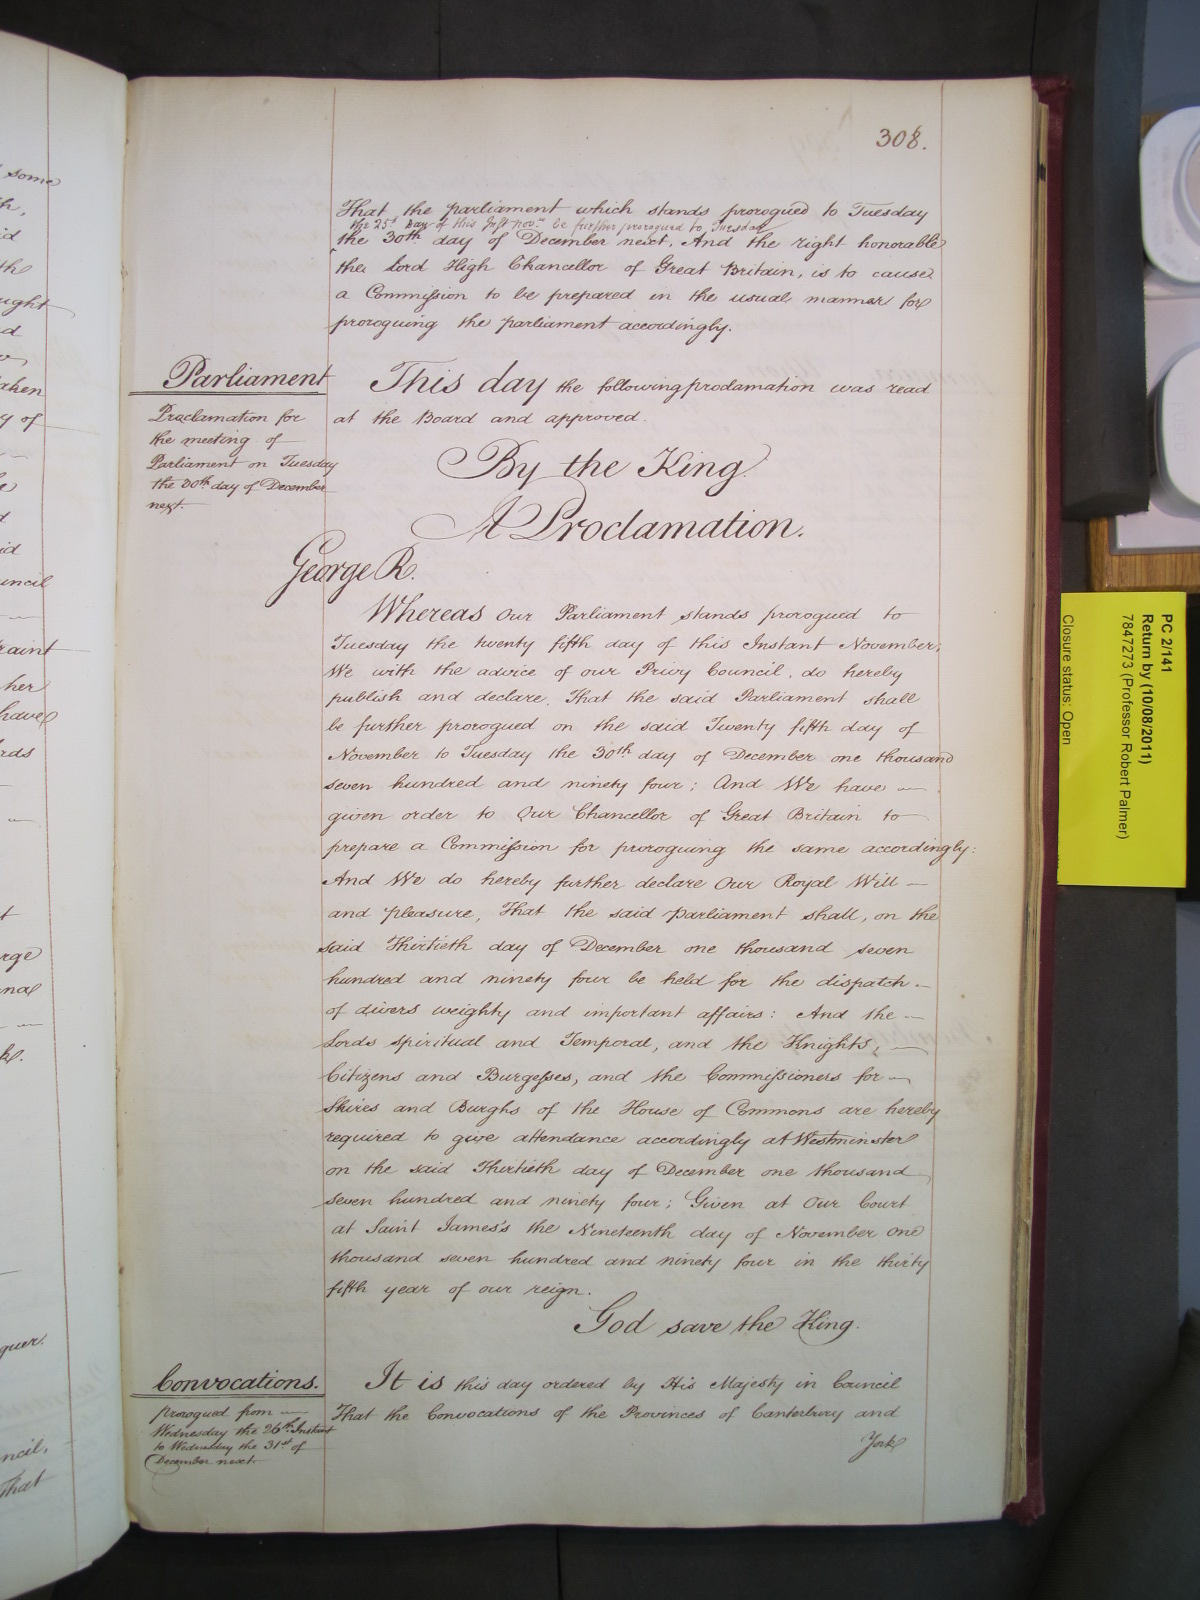 308.
That the parliament which stands prorogued to Tuesday
the 25th Day of this Inst. Novr. be further prorogued to Tuesday
the 30th day of December next, And the right honorable
the Lord High Chancellor of Great Britain, is to cause
a Commission to be prepared in the usual manner for
proroguing the parliament accordingly.
Parliament
Proclamation for
the meeting of
Parliament on Tuesday
the 30th day of December
next.
This day the following proclamation was read
at the Board and approved.
By the King
A Proclamation.
George R.
Whereas our Parliament stands prorogued to
Tuesday the twenty fifth day of this Instant November;
We with the advice of our Privy Council, do hereby
publish and declare, That the said Parliament shall
be further prorogued on the said Twenty fifth day of
November to Tuesday the 30th day of December one thousand
seven hundred and ninety four; And We have —
given order to Our Chancellor of Great Britain to
prepare a Commission for proroguing the same accordingly:
And We do hereby further declare Our Royal Will —
and pleasure, That the said parliament shall, on the
said Thirtieth day of December one thousand seven
hundred and ninety four be held for the dispatch —
of divers weighty and important affairs: And the —
Lords spiritual and Temporal, and the Knights, —
Citizens and Burgesses, and the Commissioners for —
Shires and Burghs of the House of Commons are hereby
required to give attendance accordingly at Westminster
on the said Thirtieth day of December one thousand
seven hundred and ninety four; Given at Our Court
at Saint James's the Nineteenth day of November one
thousand seven hundred and ninety four in the thirty
fifth year of our reign.
God save the King.
Convocations.
prorogued from —
Wednesday the 26th Instant
to Wednesday the 31st of
December next.
It is this day ordered by His Majesty in Council
That the Convocations of the Provinces of Canterbury and
York
PC 2/141
Return by (10/08/2011)
7847273 (Professor Robert Palmer)
Closure status: Open
some
the
ught
aken
y of
uncil
raint
her
have
rge
quer.
ncil,
That